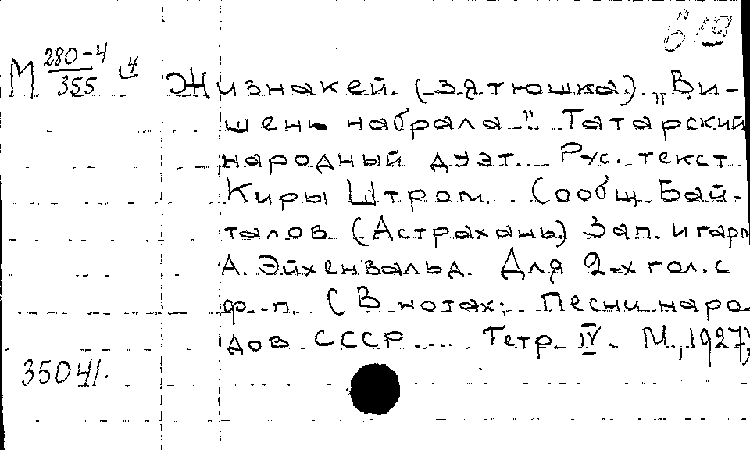 619
М 280-4/355 4
Жизнакей. (зятюшка). „Ви-
шень набрала". Татарский
народный дуэт. Рус. текст
Киры Штром. Сообщ. Бай-
талов (Астрахань) Зап. и гарм
А. Эйхенвальд. Для 2-х гол. с
ф-п. (В нотах: Песни наро
дов СССР Тетр. IV. М., 1927)
35041.